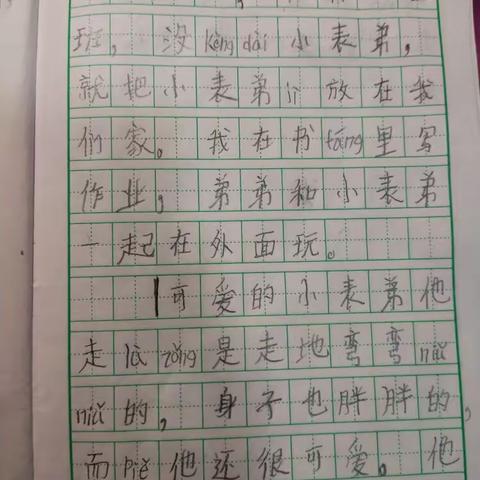 班，没kòngdài小表弟，
就把小表弟jì放在我
们家。我在书fáng里写
作业，弟弟和小表弟
一起在外面玩。
可爱的小表弟他
走lù zǒng是走地弯弯niǔ
niǔ的，身子也胖胖的，
而piě他还很可爱。他